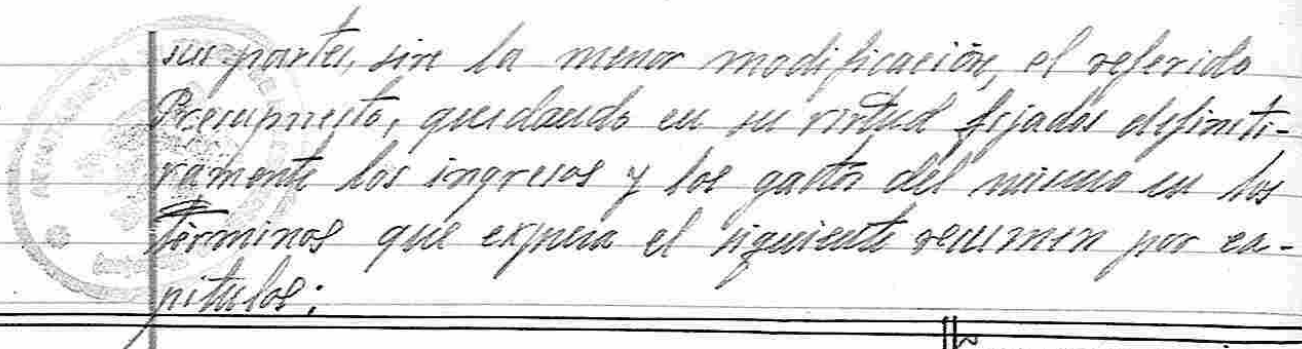 sus partes, sin la menor modificación, el referido
Presupuesto, quedando en su virtud fijados definiti-
vamente los ingresos y los gastos del mismo en los
términos que expresa el siguiente resumen por ca-
pítulos: